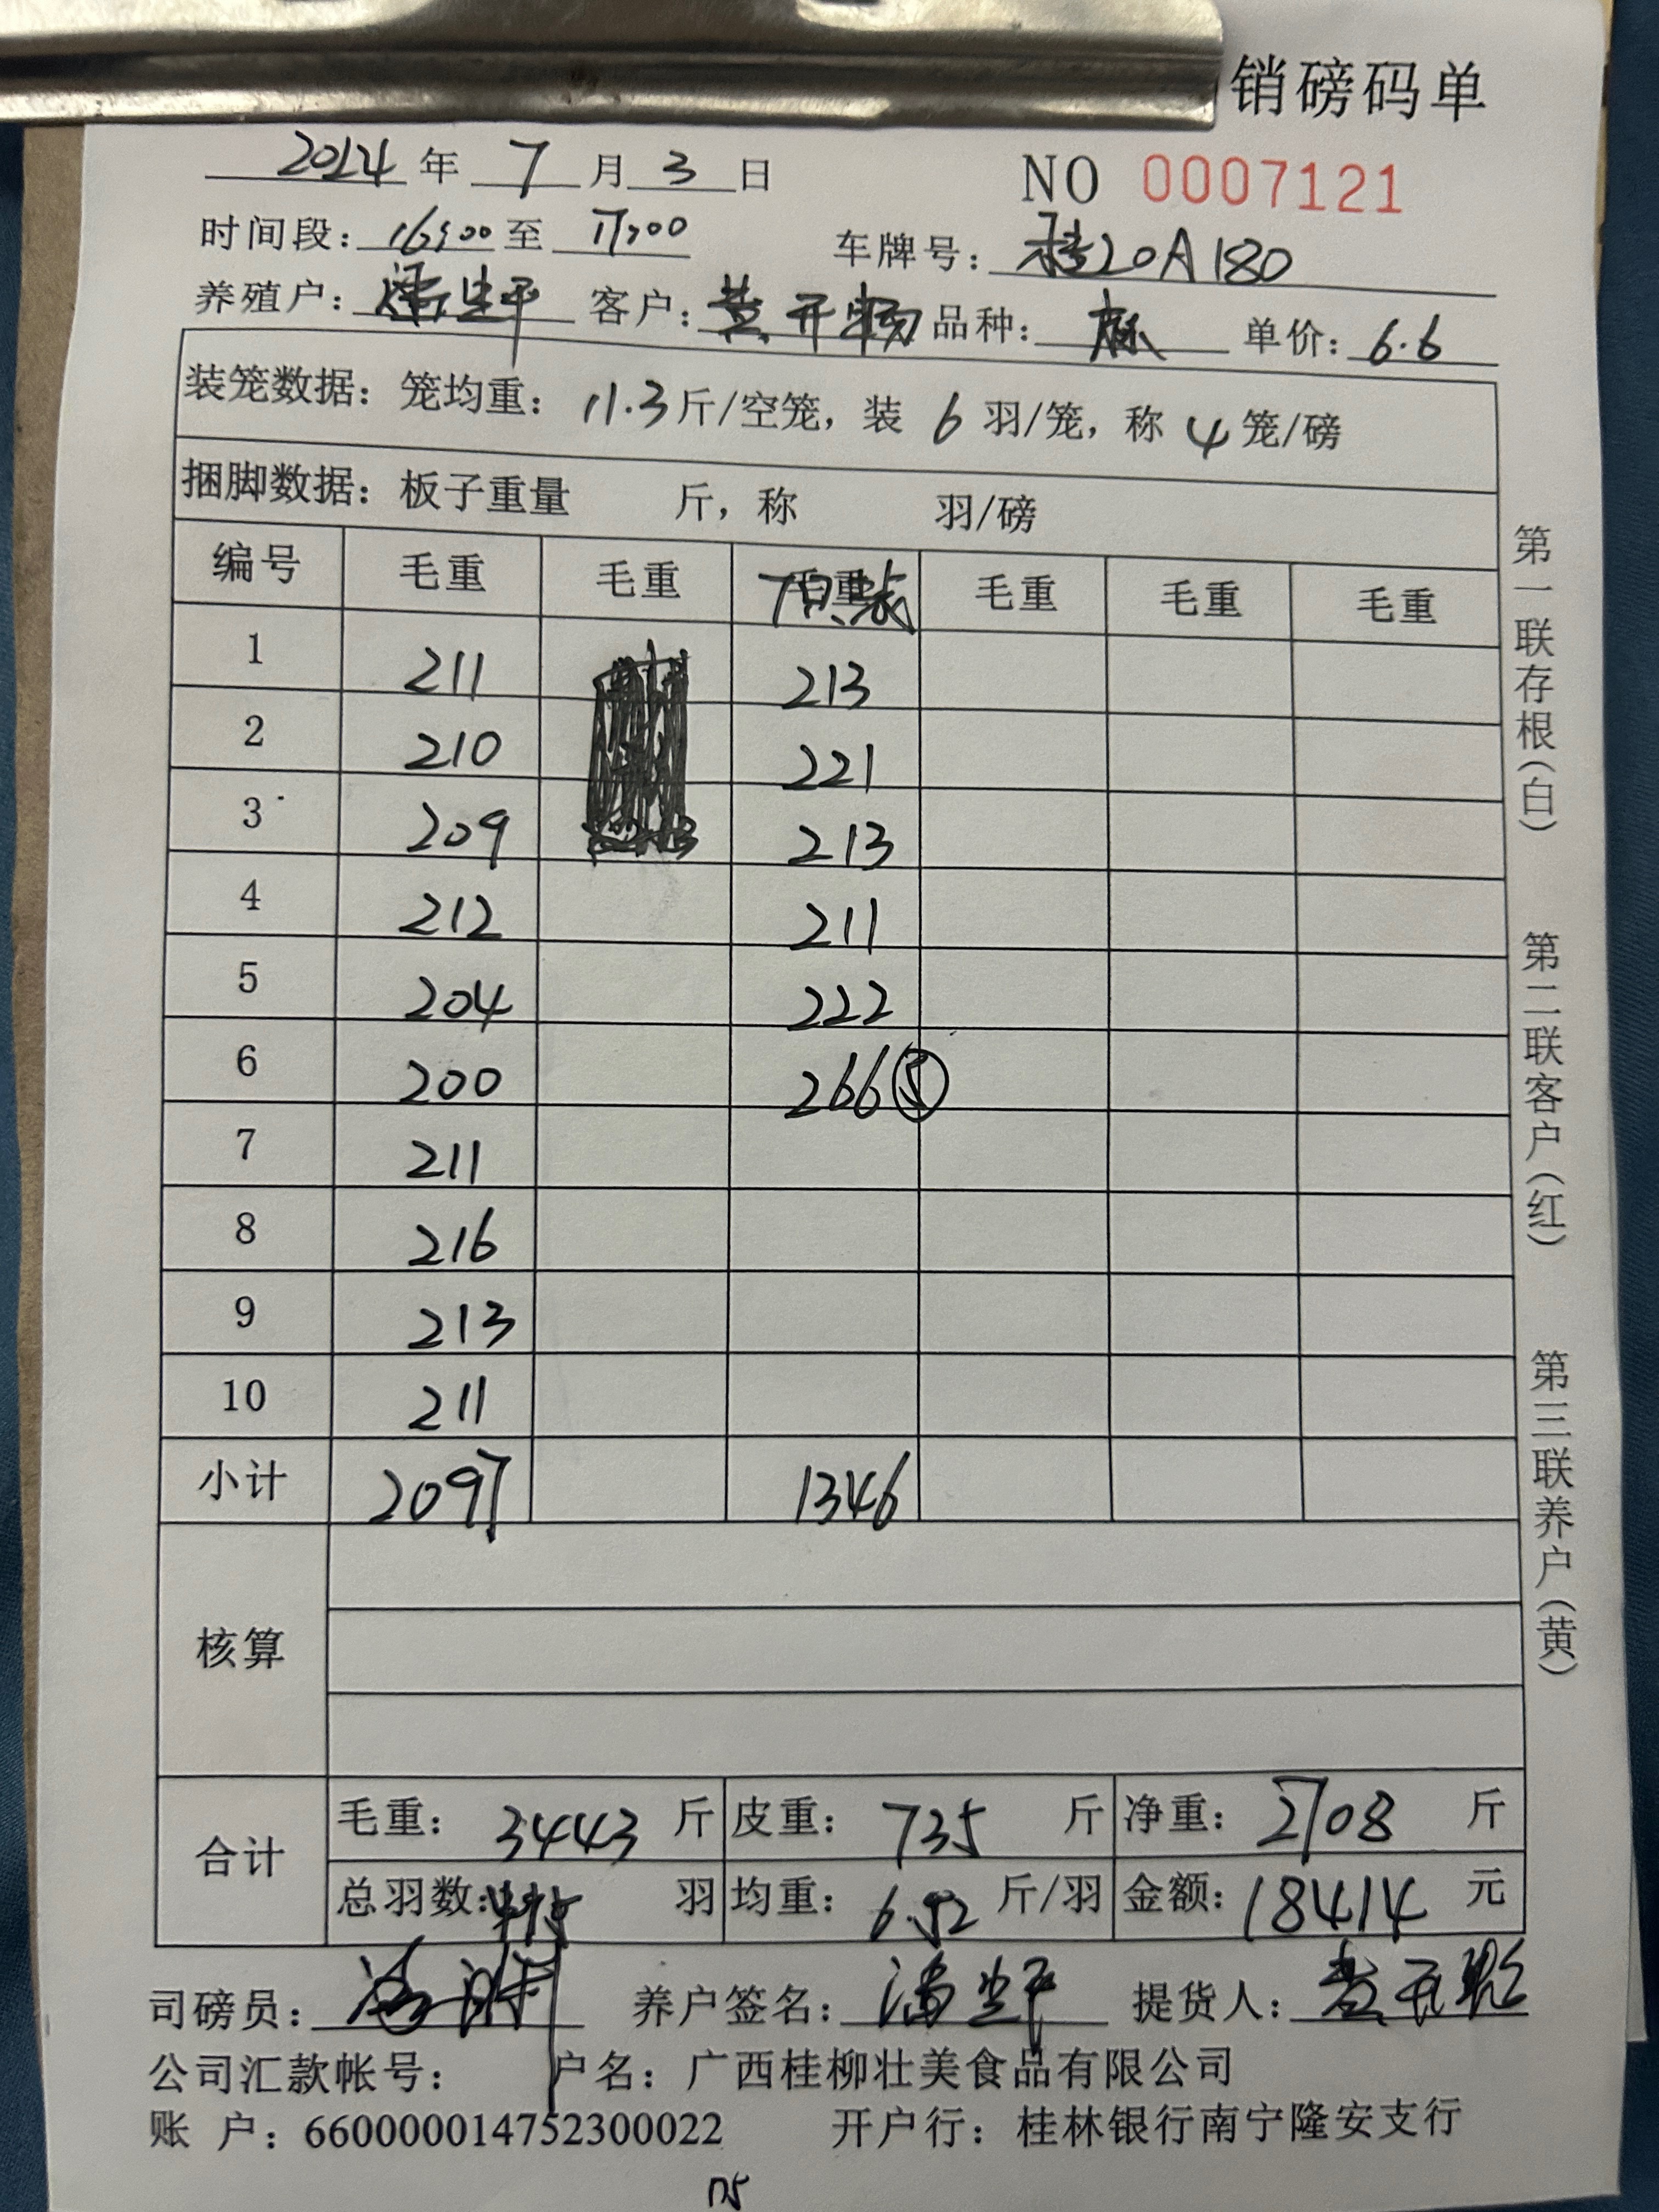 销磅码单
2024 年 7 月 3 日 NO 0007121
时间段: 16:00 至 17:00 车牌号: 桂20A180
养殖户: 潘生平 客户: 黄开 品种: 麻 单价: 6.6
装笼数据: 笼均重: 11.3 斤/空笼, 装 6 羽/笼, 称 4 笼/磅
捆脚数据: 板子重量 斤, 称 羽/磅
编号 毛重 毛重 毛重 7只装 毛重 毛重 毛重
1 211 213
2 210 221
3 209 213
4 212 211
5 204 222
6 200 266 ⑤
7 211
8 216
9 213
10 211
小计 2097 1346
核算
合计 毛重: 3443 斤 皮重: 735 斤 净重: 2708 斤
总羽数: 羽 均重: 6.52 斤/羽 金额: 18414 元
司磅员: 养户签名: 潘生平 提货人: 黄
公司汇款帐号: 户名: 广西桂柳壮美食品有限公司
账 户: 660000014752300022 开户行: 桂林银行南宁隆安支行
第一联存根(白) 第二联客户(红) 第三联养户(黄)